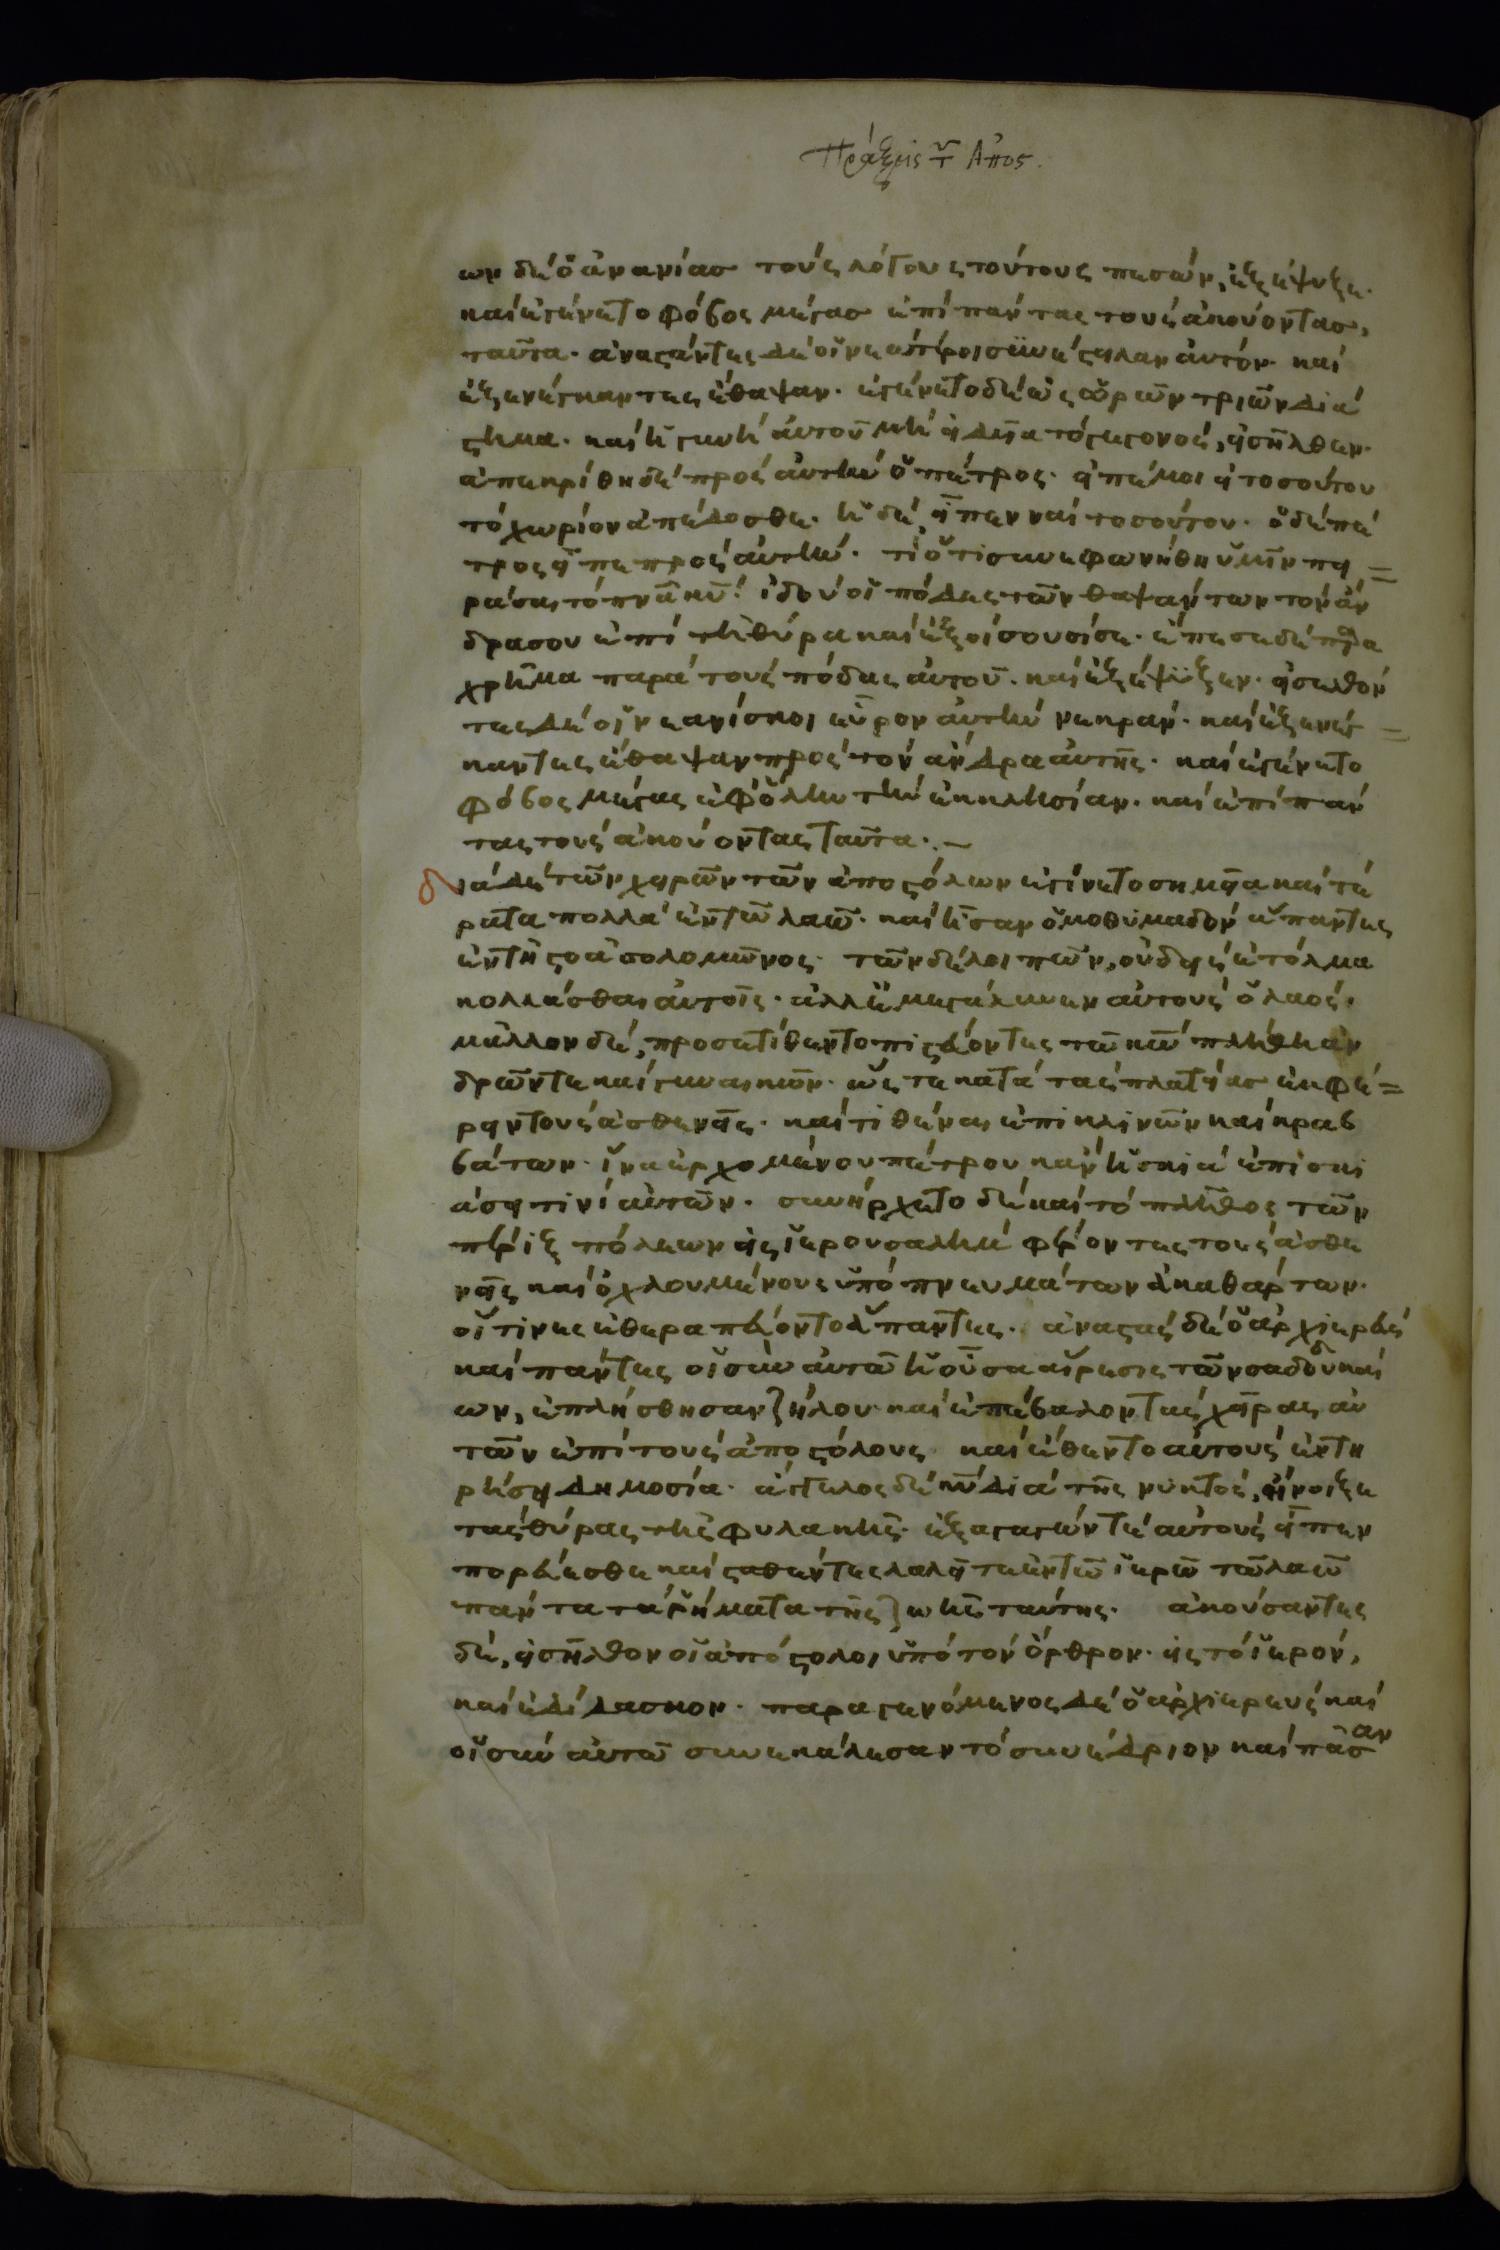 Πράξεις τ Ἀπος.
ων δὲ ὁ ἀνανίας τοὺς λόγους τούτους πεσών, ἐξέψυξε.
καὶ ἐγένετο φόβος μέγας ἐπὶ πάντας τοὺς ἀκούοντας,
ταῦτα. ἀναστάντες δὲ οἱ νεώτεροι συνέστηλαν αὐτόν. καὶ
ἐξενέγκαντες ἔθαψαν. ἐγένετο δὲ ὡς ὡρῶν τριῶν διά
στημα. καὶ ἡ γυνὴ αὐτοῦ μὴ εἰδεῖα τὸ γεγονός, εἰσῆλθεν.
ἀπεκρίθη δὲ πρὸς αὐτὴν ὁ πέτρος. εἰπέ μοι εἰ τοσούτου
τὸ χωρίον ἀπέδοσθε. ἡ δέ, εἶπεν ναὶ τοσούτου. ὁ δὲ πέ
τρος εἶπε πρὸς αὐτήν. τί ὅτι συνεφωνήθη ὑμῖν πει =
ράσαι τὸ πνα κυ; ἰδοὺ οἱ πόδες τῶν θαψάντων τὸν ἄν
δρα σου ἐπὶ τῇ θύρᾳ καὶ ἐξοίσουσί σε. ἔπεσε δὲ παρα
χρῆμα παρὰ τοὺς πόδας αὐτοῦ. καὶ ἐξέψυξεν. εἰσελθόν
τες δὲ οἱ νεανίσκοι εὗρον αὐτὴν νεκράν. καὶ ἐξενέγ =
καντες ἔθαψαν πρὸς τὸν ἄνδρα αὐτῆς. καὶ ἐγένετο
φόβος μέγας ἐφ' ὅλην τὴν ἐκκλησίαν. καὶ ἐπὶ πάν
τας τοὺς ἀκούοντας ταῦτα. ~
διὰ δὲ τῶν χειρῶν τῶν ἀποστόλων ἐγίνετο σημεῖα καὶ τέ
ρατα πολλὰ ἐν τῷ λαῷ. καὶ ἦσαν ὁμοθυμαδὸν ἅπαντες
ἐν τῇ στοᾷ σολομῶνος. τῶν δὲ λοιπῶν, οὐδεὶς ἐτόλμα
κολλᾶσθαι αὐτοῖς. ἀλλ' ἐμεγάλυνεν αὐτοὺς ὁ λαός.
μᾶλλον δέ, προσετίθεντο πιστεύοντες τῷ κω πλήθη ἀν
δρῶν τε καὶ γυναικῶν. ὥστε κατὰ τὰς πλατείας ἐκφέ =
ρειν τοὺς ἀσθενεῖς. καὶ τιθέναι ἐπὶ κλινῶν καὶ κραβ
βάτων. ἵνα ἐρχομένου πέτρου κἂν ἡ σκιὰ ἐπισκι
άσει τινὶ αὐτῶν. συνήρχετο δὲ καὶ τὸ πλῆθος τῶν
πέριξ πόλεων εἰς ἱερουσαλὴμ φέροντες τοὺς ἀσθε
νεῖς καὶ ὀχλουμένους ὑπὸ πνευμάτων ἀκαθάρτων.
οἵτινες ἐθεραπεύοντο ἅπαντες. ἀναστὰς δὲ ὁ ἀρχιερεὺς
καὶ πάντες οἱ σὺν αὐτῷ ἡ οὖσα αἵρεσις τῶν σαδδουκαί
ων, ἐπλήσθησαν ζήλου. καὶ ἐπέβαλον τὰς χεῖρας αὐ
τῶν ἐπὶ τοὺς ἀποστόλους καὶ ἔθεντο αὐτοὺς ἐν τη
ρήσει δημοσίᾳ. ἄγγελος δὲ κυ διὰ τῆς νυκτός, ἤνοιξε
τὰς θύρας τῆς φυλακῆς. ἐξαγαγών τε αὐτοὺς εἶπεν
πορεύεσθε καὶ σταθέντες λαλεῖτε ἐν τῷ ἱερῷ τῷ λαῷ
πάντα τὰ ῥήματα τῆς ζωῆς ταύτης. ἀκούσαντες
δέ, εἰσῆλθον οἱ ἀπόστολοι ὑπὸ τὸν ὄρθρον. εἰς τὸ ἱερόν,
καὶ ἐδίδασκον. παραγενόμενος δὲ ὁ ἀρχιερεὺς καὶ
οἱ σὺν αὐτῷ συνεκάλεσαν τὸ συνέδριον καὶ πᾶσαν